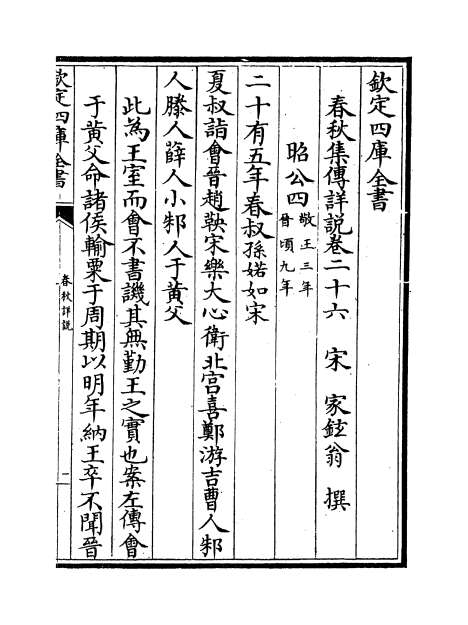 欽定四庫全書
春秋集傳詳說卷二十六 宋 家鉉翁 撰
昭公四
敬王三年
晉頃九年
二十有五年春叔孫婼如宋
夏叔詣會晉趙鞅宋樂大心衛北宫喜鄭游吉曹人邾
人滕人薛人小邾人于黄父
此為王室而會不書譏其無勤王之實也案左傳會
于黄父命諸侯輸粟于周期以明年納王卒不聞晉
欽定四庫全書
春秋詳說